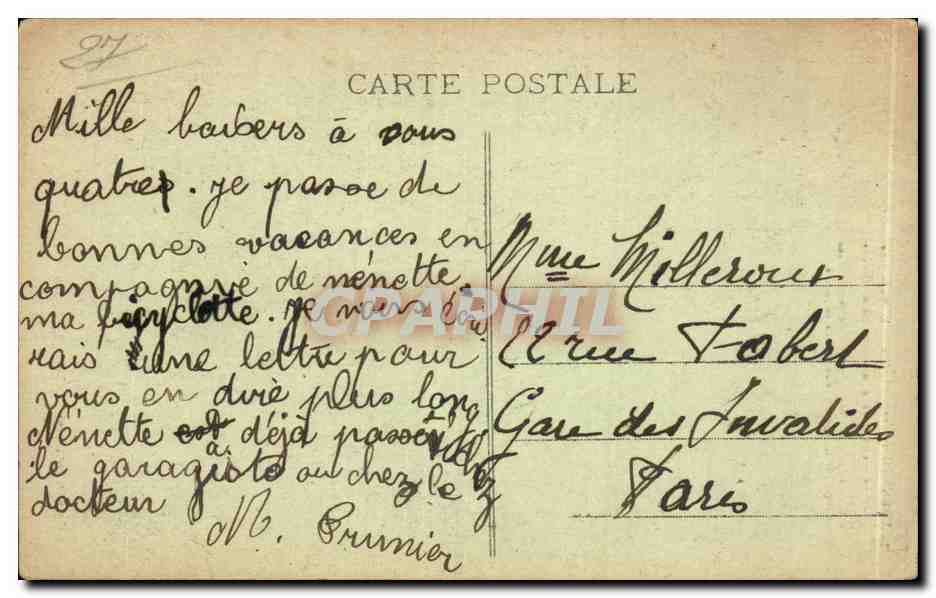 27
CARTE POSTALE
Mille baisers à vous
quatres. Je passe de
bonnes vacances en
compagnie de nénette
ma bicyclette. Je vous écri
rais une lettre pour
vous en dire plus long
Nénette a déjà passé chez
le garagiste ou chez le
docteur
M. Prunier
Mme Milleroux
22 rue Fabert
Gare des Invalides
Paris
CPAPHIL